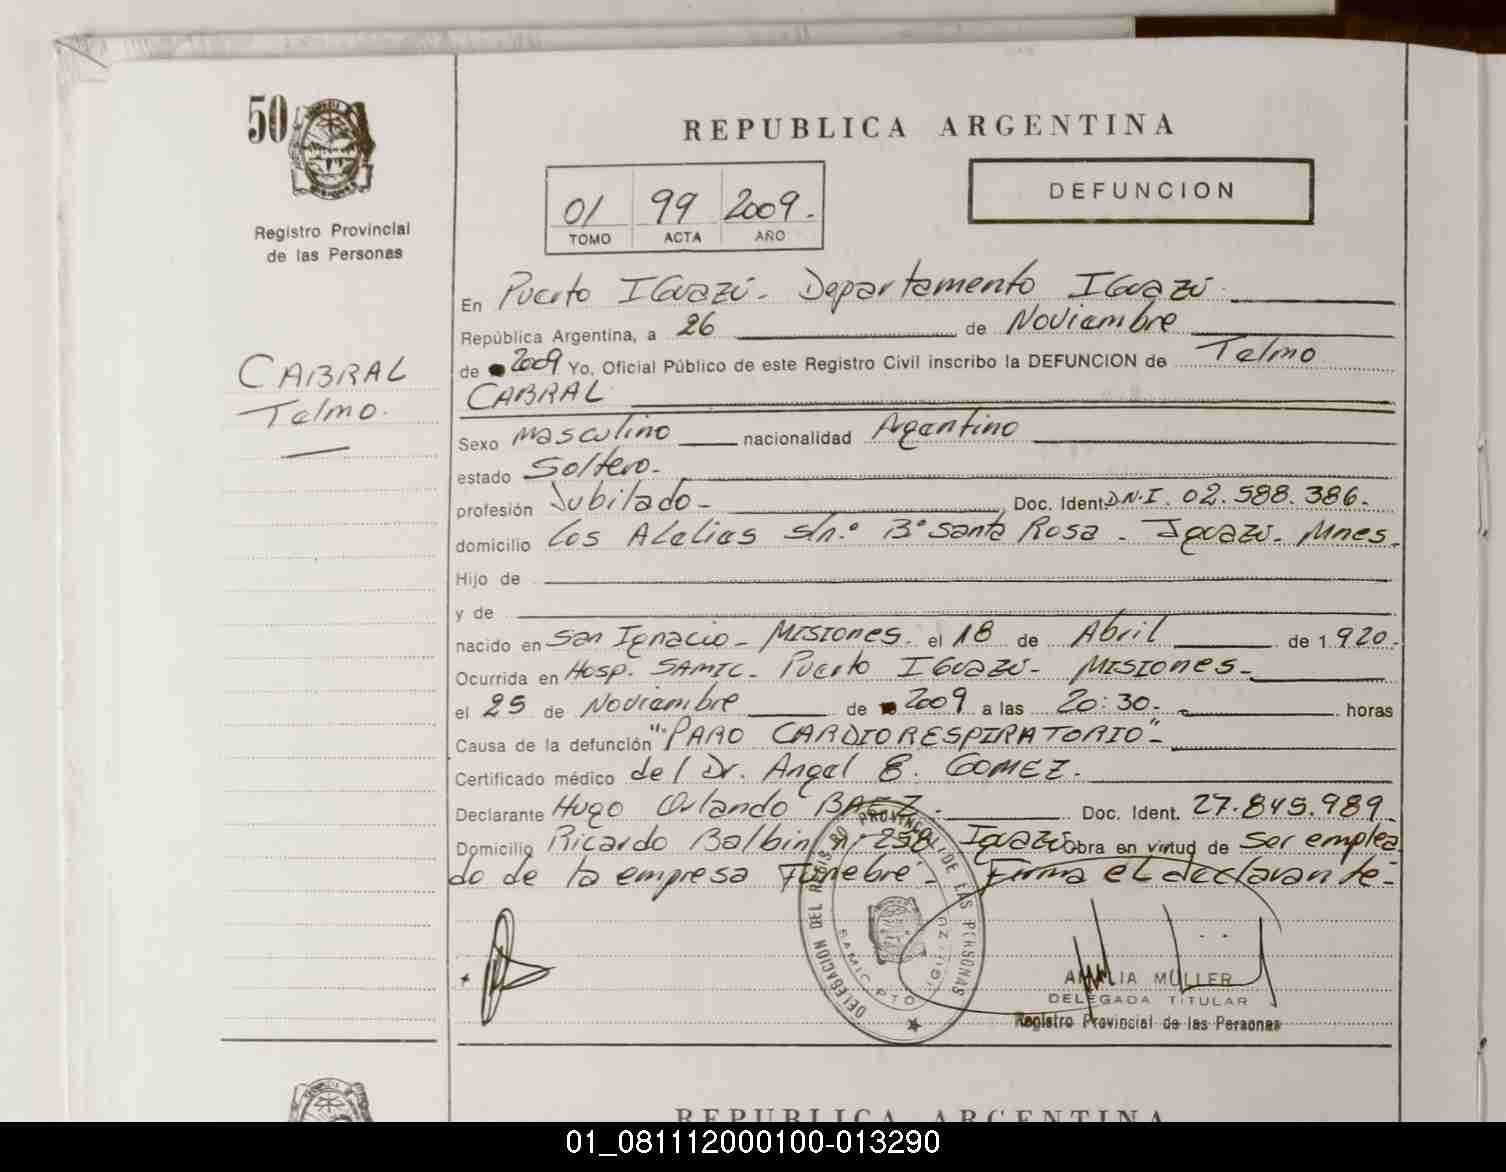 50
Registro Provincial
de las Personas
CABRAL
Telmo.
REPUBLICA ARGENTINA
01 99 2009.
TOMO ACTA AÑO
DEFUNCION
En Puerto IGuazú. Departamento IGuazú.
República Argentina, a 26 de Noviembre
de 2009 Yo, Oficial Público de este Registro Civil inscribo la DEFUNCION de Telmo
CABRAL
Sexo masculino nacionalidad Argentino
estado Soltero.
profesión Jubilado - Doc. Ident. D.N.I. 02.588.386.
domicilio Los Alelias s/n.º Bº Santa Rosa - Iguazú. Mnes.
Hijo de
y de
nacido en San Ignacio - MISIONES. el 18 de Abril de 1.920.
Ocurrida en Hosp. SAMIC. Puerto IGuazú - MISIONES.
el 25 de Noviembre de 2009 a las 20:30. horas
Causa de la defunción "PARO CARDIORESPIRATORIO"-
Certificado médico del Dr. Angel E. GOMEZ.
Declarante Hugo Orlando BAEZ. Doc. Ident. 27.845.989
Domicilio Ricardo Balbin nº 258 Iguazú. Obra en virtud de ser emplea
do de la empresa Funebre. Firma el declarante.-
DELEGACION DEL REGISTRO PROVINCIAL DE LAS PERSONAS
SAMIC PTO. IGUAZU
AMALIA MULLER
DELEGADA TITULAR
Registro Provincial de las Personas
REPUBLICA ARGENTINA
01_081112000100-013290